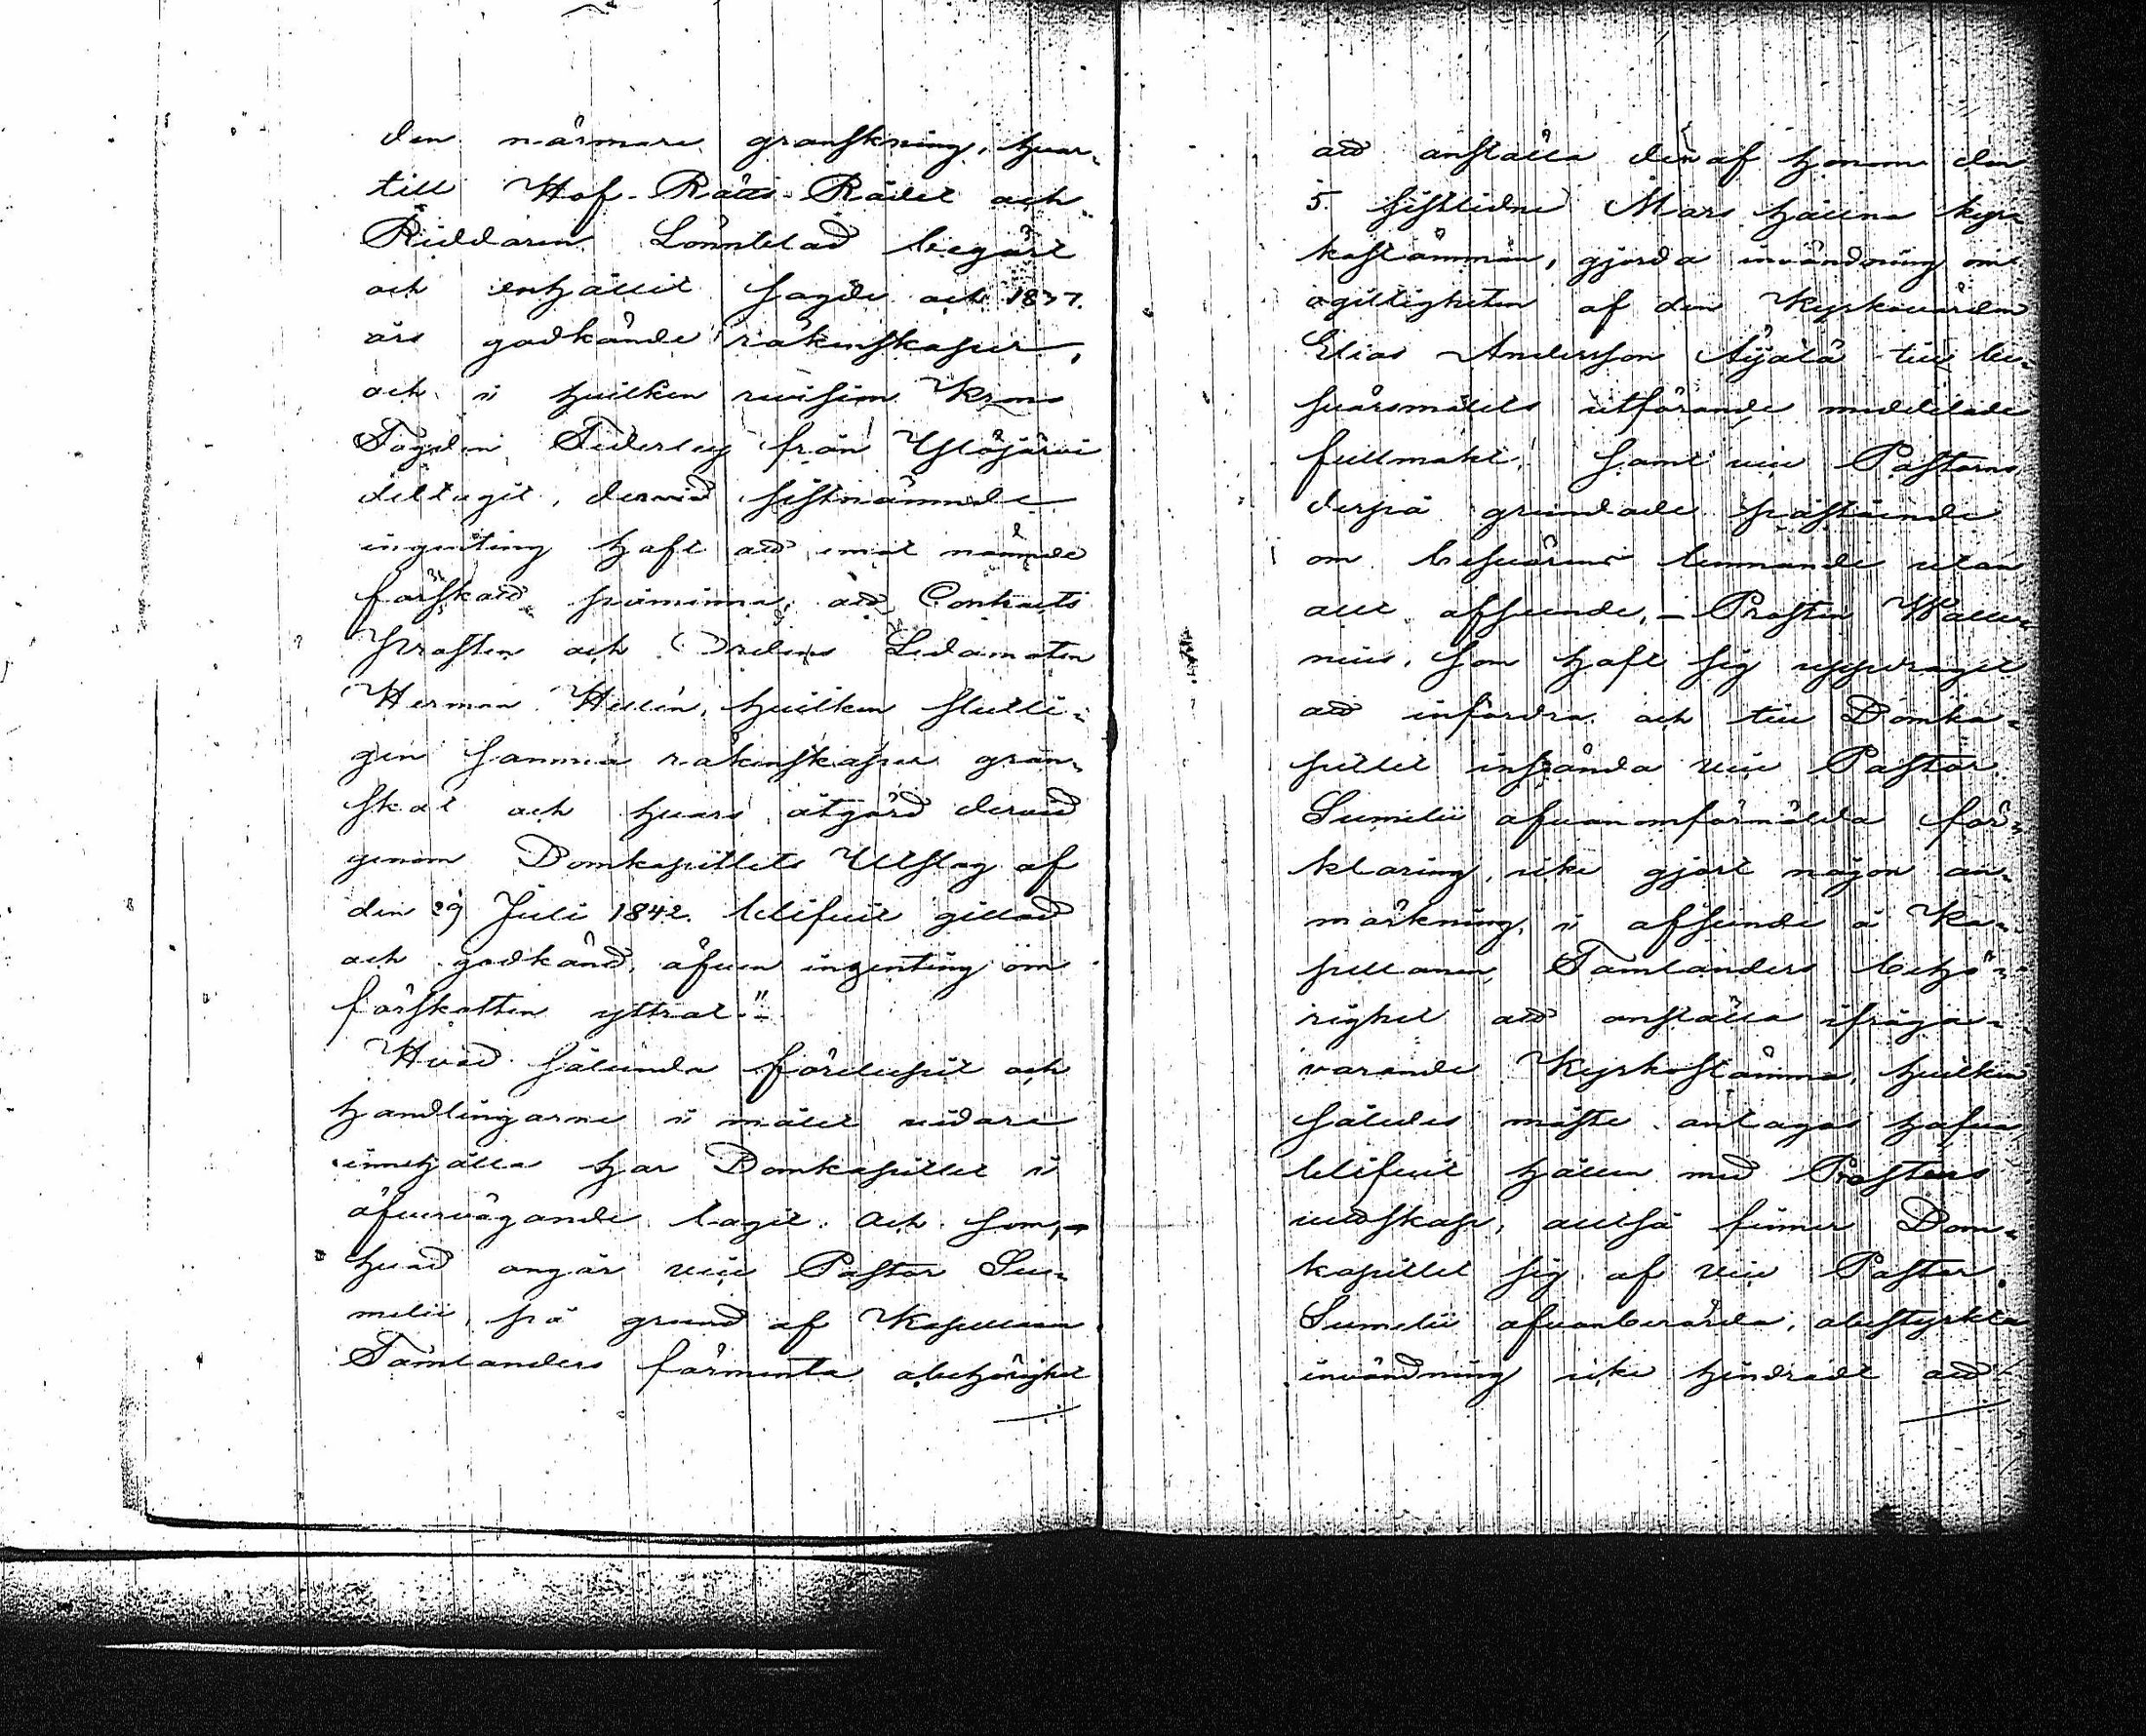 den närmare granskning, hvar-
till Hof-Rätts-Rådet och
Riddaren Lönnblad begärt
och erhållit sagde och 1837.
års godkände räkenskaper,
och i hvilken revision Krono
Fogden Federley från Ylöjärvi
deltagit, dervid sistnämnde
ingenting haft att emot nämnde
förskott påminna; att Contracts
Prosten och Ordens Ledamoten
Herman Hellén, hvilken slutli-
gen samma räkenskaper gran-
skat och hvars åtgärd dervid
genom Domkapitlets Utslag af
den 29 Juli 1842. blifvit gillad
och godkänd, äfven ingenting om
förskotten yttrat."
Hvad sålunda förelupit och
handlingarne i målet vidare
innehålla har Domkapitlet i
öfvervägande tagit. Och som,
hvad angår vice Pastor Su-
melii, på grund af Kapellan
Tamlanders förmenta obehörighet
att anställa den af honom den
5 sistlidne Mars hållna kyr-
kostämman, gjorda invändning om
ogiltigheten af den Kyrkovärden
Elias Andersson Äijälä till be-
svärsmålets utförande meddelade
fullmakt, samt vice Pastorns
derpå grundade påstående
om besvärens lemnande utan
allt afseende, – Prosten Walle-
nius, som haft sig uppdraget
att infordra och till Domka-
pitlet insända vice Pastor
Sumelii ofvanomförmälda för-
klaring, icke gjort någon an-
märkning, i afseende å Ka-
pellanen Tamlanders behö-
righet att anställa ifråga-
varande Kyrkostämma, hvilken
således måste antagas hafva
blifvit hållen med Prostens
vetskap; alltså finner Dom-
kapitlet sig af vice Pastor
Sumelii ofvanberörda, obestyrkta
invändning icke hindradt att